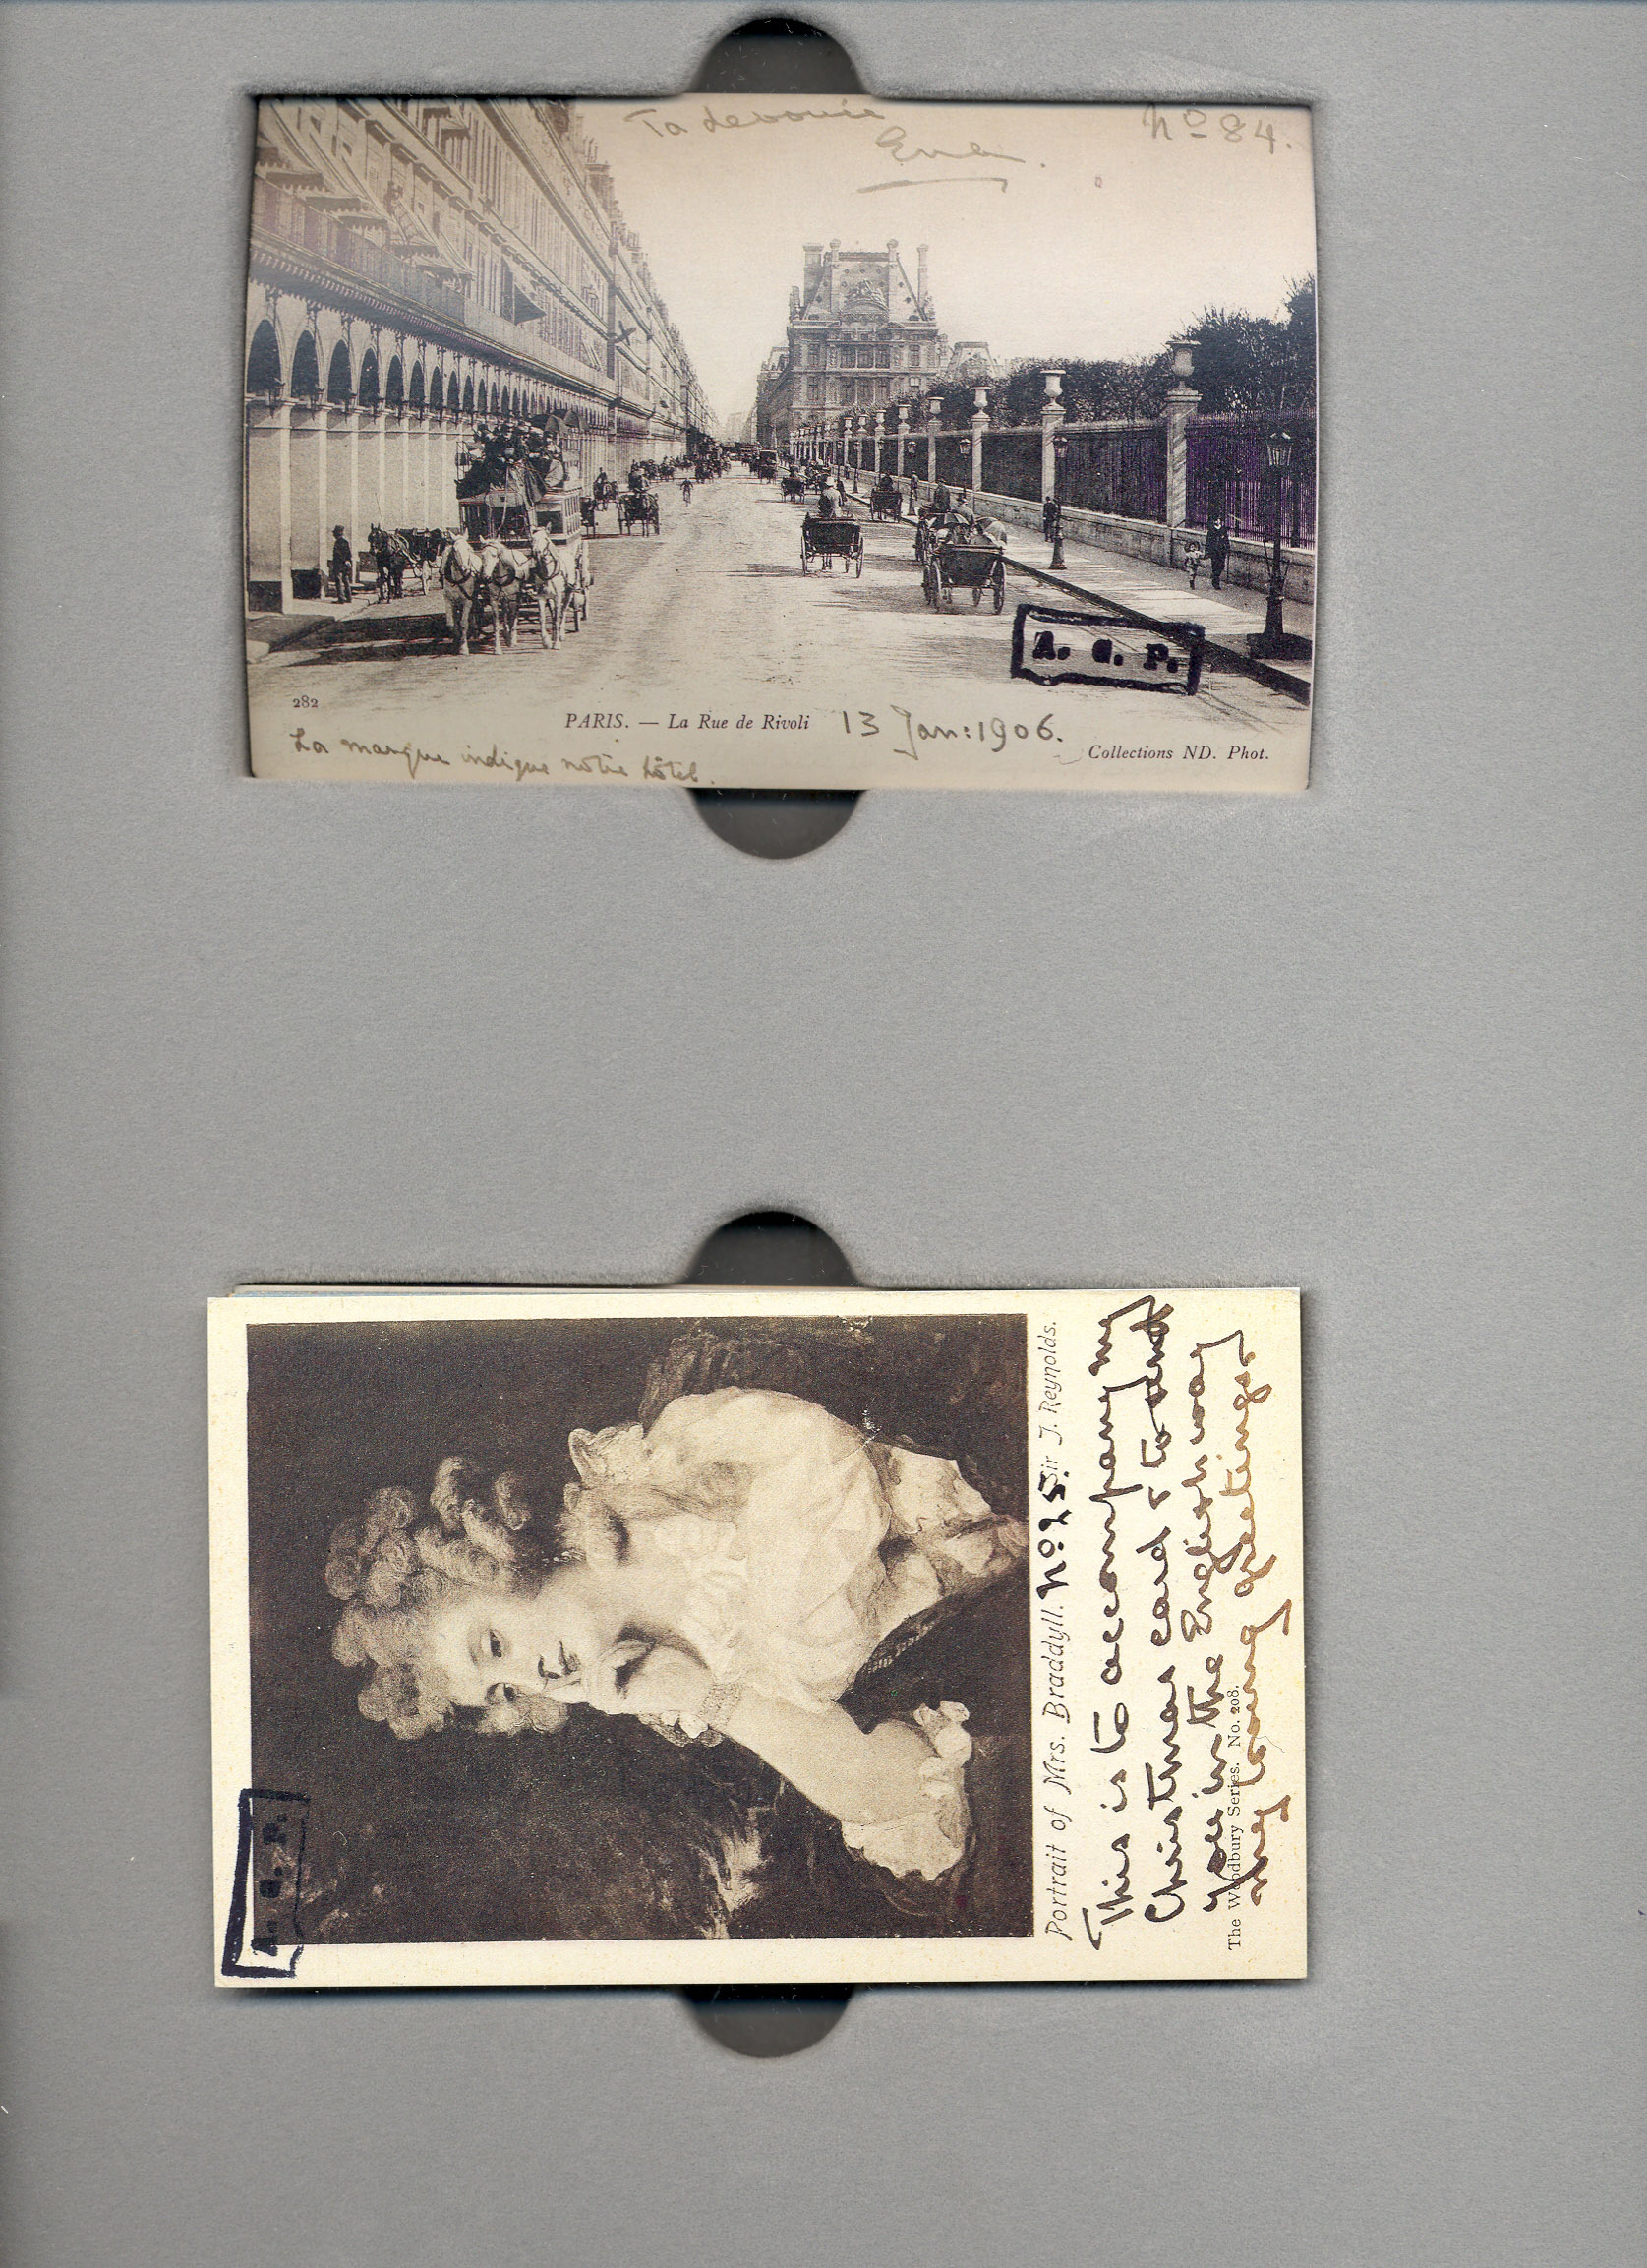 Ta devouée
Eva.
No 84.
A. C. P.
282
PARIS. — La Rue de Rivoli 13 Jan: 1906.
Collections ND. Phot.
La marque indique notre hôtel.
A. C. P.
Portrait of Mrs. Braddyll. No 25. Sir J. Reynolds.
This is to accompany my
Christmas card & to send
you in the English way
The Woodbury Series. No. 208.
my loving greetings.